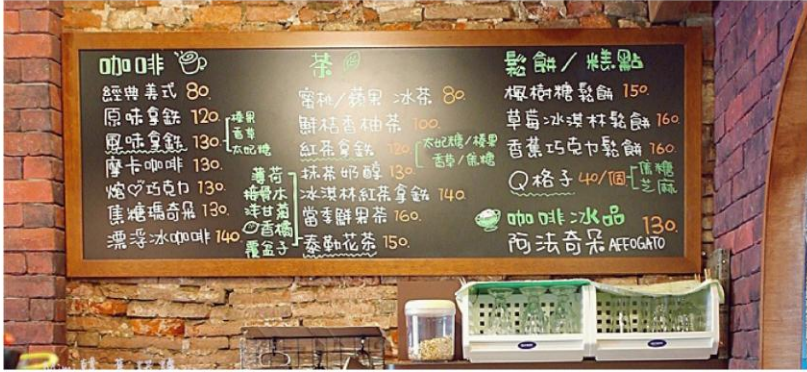 咖啡
經典美式 80.
原味拿鉄 120.
風味拿鉄 130.
榛果
香草
太妃糖
摩卡咖啡 130.
熔♡巧克力 130.
焦糖瑪奇朵 130.
漂浮冰咖啡 140
茶
蜜桃/蘋果 冰茶 80.
鮮桔香柚茶 100.
紅茶拿鉄 120.
太妃糖/榛果
香草/焦糖
抹茶奶醇 130.
冰淇林紅茶拿鉄 140.
當季鮮果茶 160.
泰勒花茶 150.
薄荷
接骨木
洋甘菊
香橘
覆盆子
鬆餅/糕點
楓樹糖鬆餅 150.
草莓冰淇林鬆餅 160.
香蕉巧克力鬆餅 160.
Q格子 40/個
焦糖
芝麻
咖啡冰品
阿法奇朵 AFFOGATO 130.